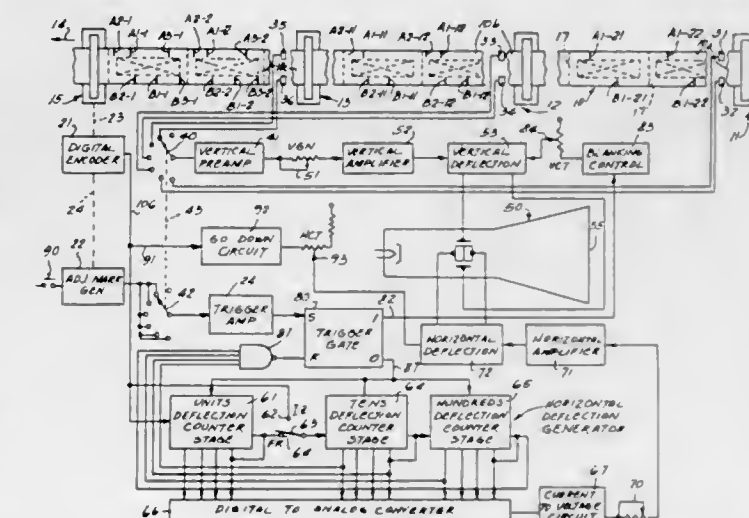 A2-1 A1-1 A3-1 A2-2 A1-2 A3-2 35 A2-11 A1-11 A2-12 A1-12 106 33 17 A1-21 A1-22 31
14
15
B2-1 B1-1 B3-1 B2-2 B1-2 B3-2 36 13 B2-11 B1-11 B2-12 B1-12 34 12 B1-21 B1-22 32 11
23
21
DIGITAL ENCODER
40
VERTICAL PREAMP
41
VGN
51
VERTICAL AMPLIFIER
52
VERTICAL DEFLECTION
53
84
VCT
BLANKING CONTROL
83
24
106
43
50
55
90
91
92
GO DOWN CIRCUIT
HCT
93
22
ADJ MARK GEN
42
TRIGGER AMP
24
80
S 1
TRIGGER GATE
R 0
82
81
87
HORIZONTAL DEFLECTION
72
HORIZONTAL AMPLIFIER
71
UNITS DEFLECTION COUNTER STAGE
61
62
63
FR
64
TENS DEFLECTION COUNTER STAGE
64
HUNDREDS DEFLECTION COUNTER STAGE
65
HORIZONTAL DEFLECTION GENERATOR
66
DIGITAL TO ANALOG CONVERTER
CURRENT TO VOLTAGE CIRCUIT
67
70